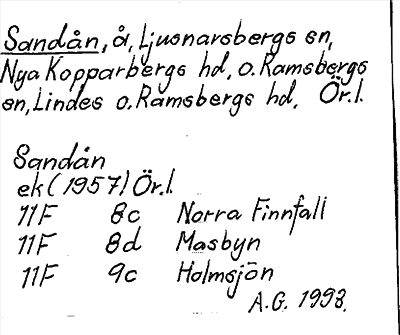 Sandån, å, Ljusnarsbergs sn,
Nya Kopparbergs hd, o. Ramsbergs
sn, Lindes o. Ramsbergs hd, Ör.l.
Sandån
ek (1957) Ör.l.
11F 8c Norra Finnfall
11F 8d Masbyn
11F 9c Holmsjön
A.G. 1993.